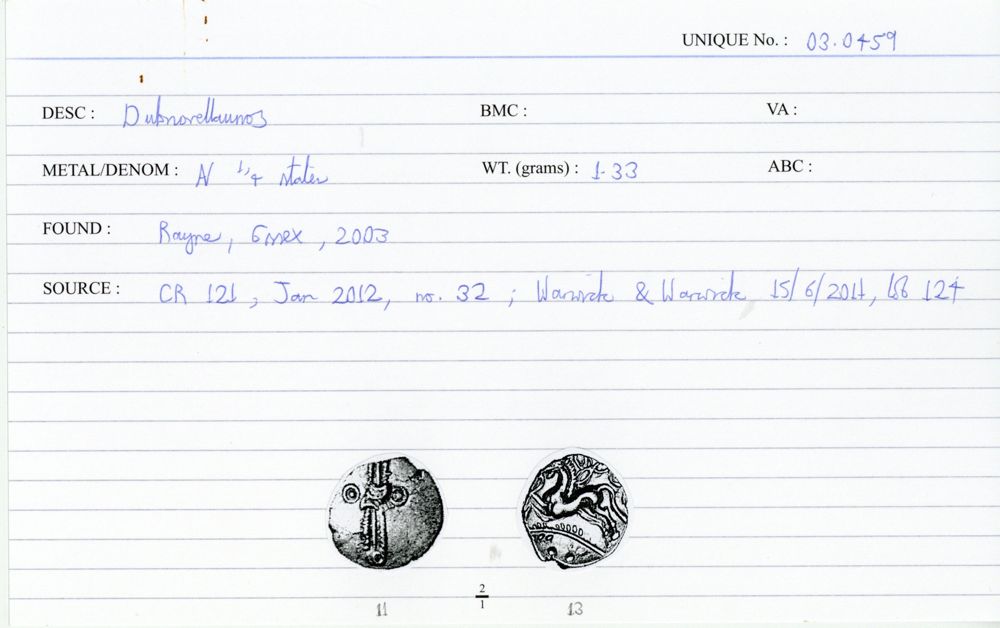 UNIQUE No. : 03.0459
DESC : Dubnovellaunos BMC : VA :
METAL/DENOM : N 1/4 stater WT. (grams) : 1.33 ABC :
FOUND : Rayne, Essex, 2003
SOURCE : CR 121, Jan 2012, no. 32 ; Warwick & Warwick 15/6/2011, lot 124
2
1
11 13